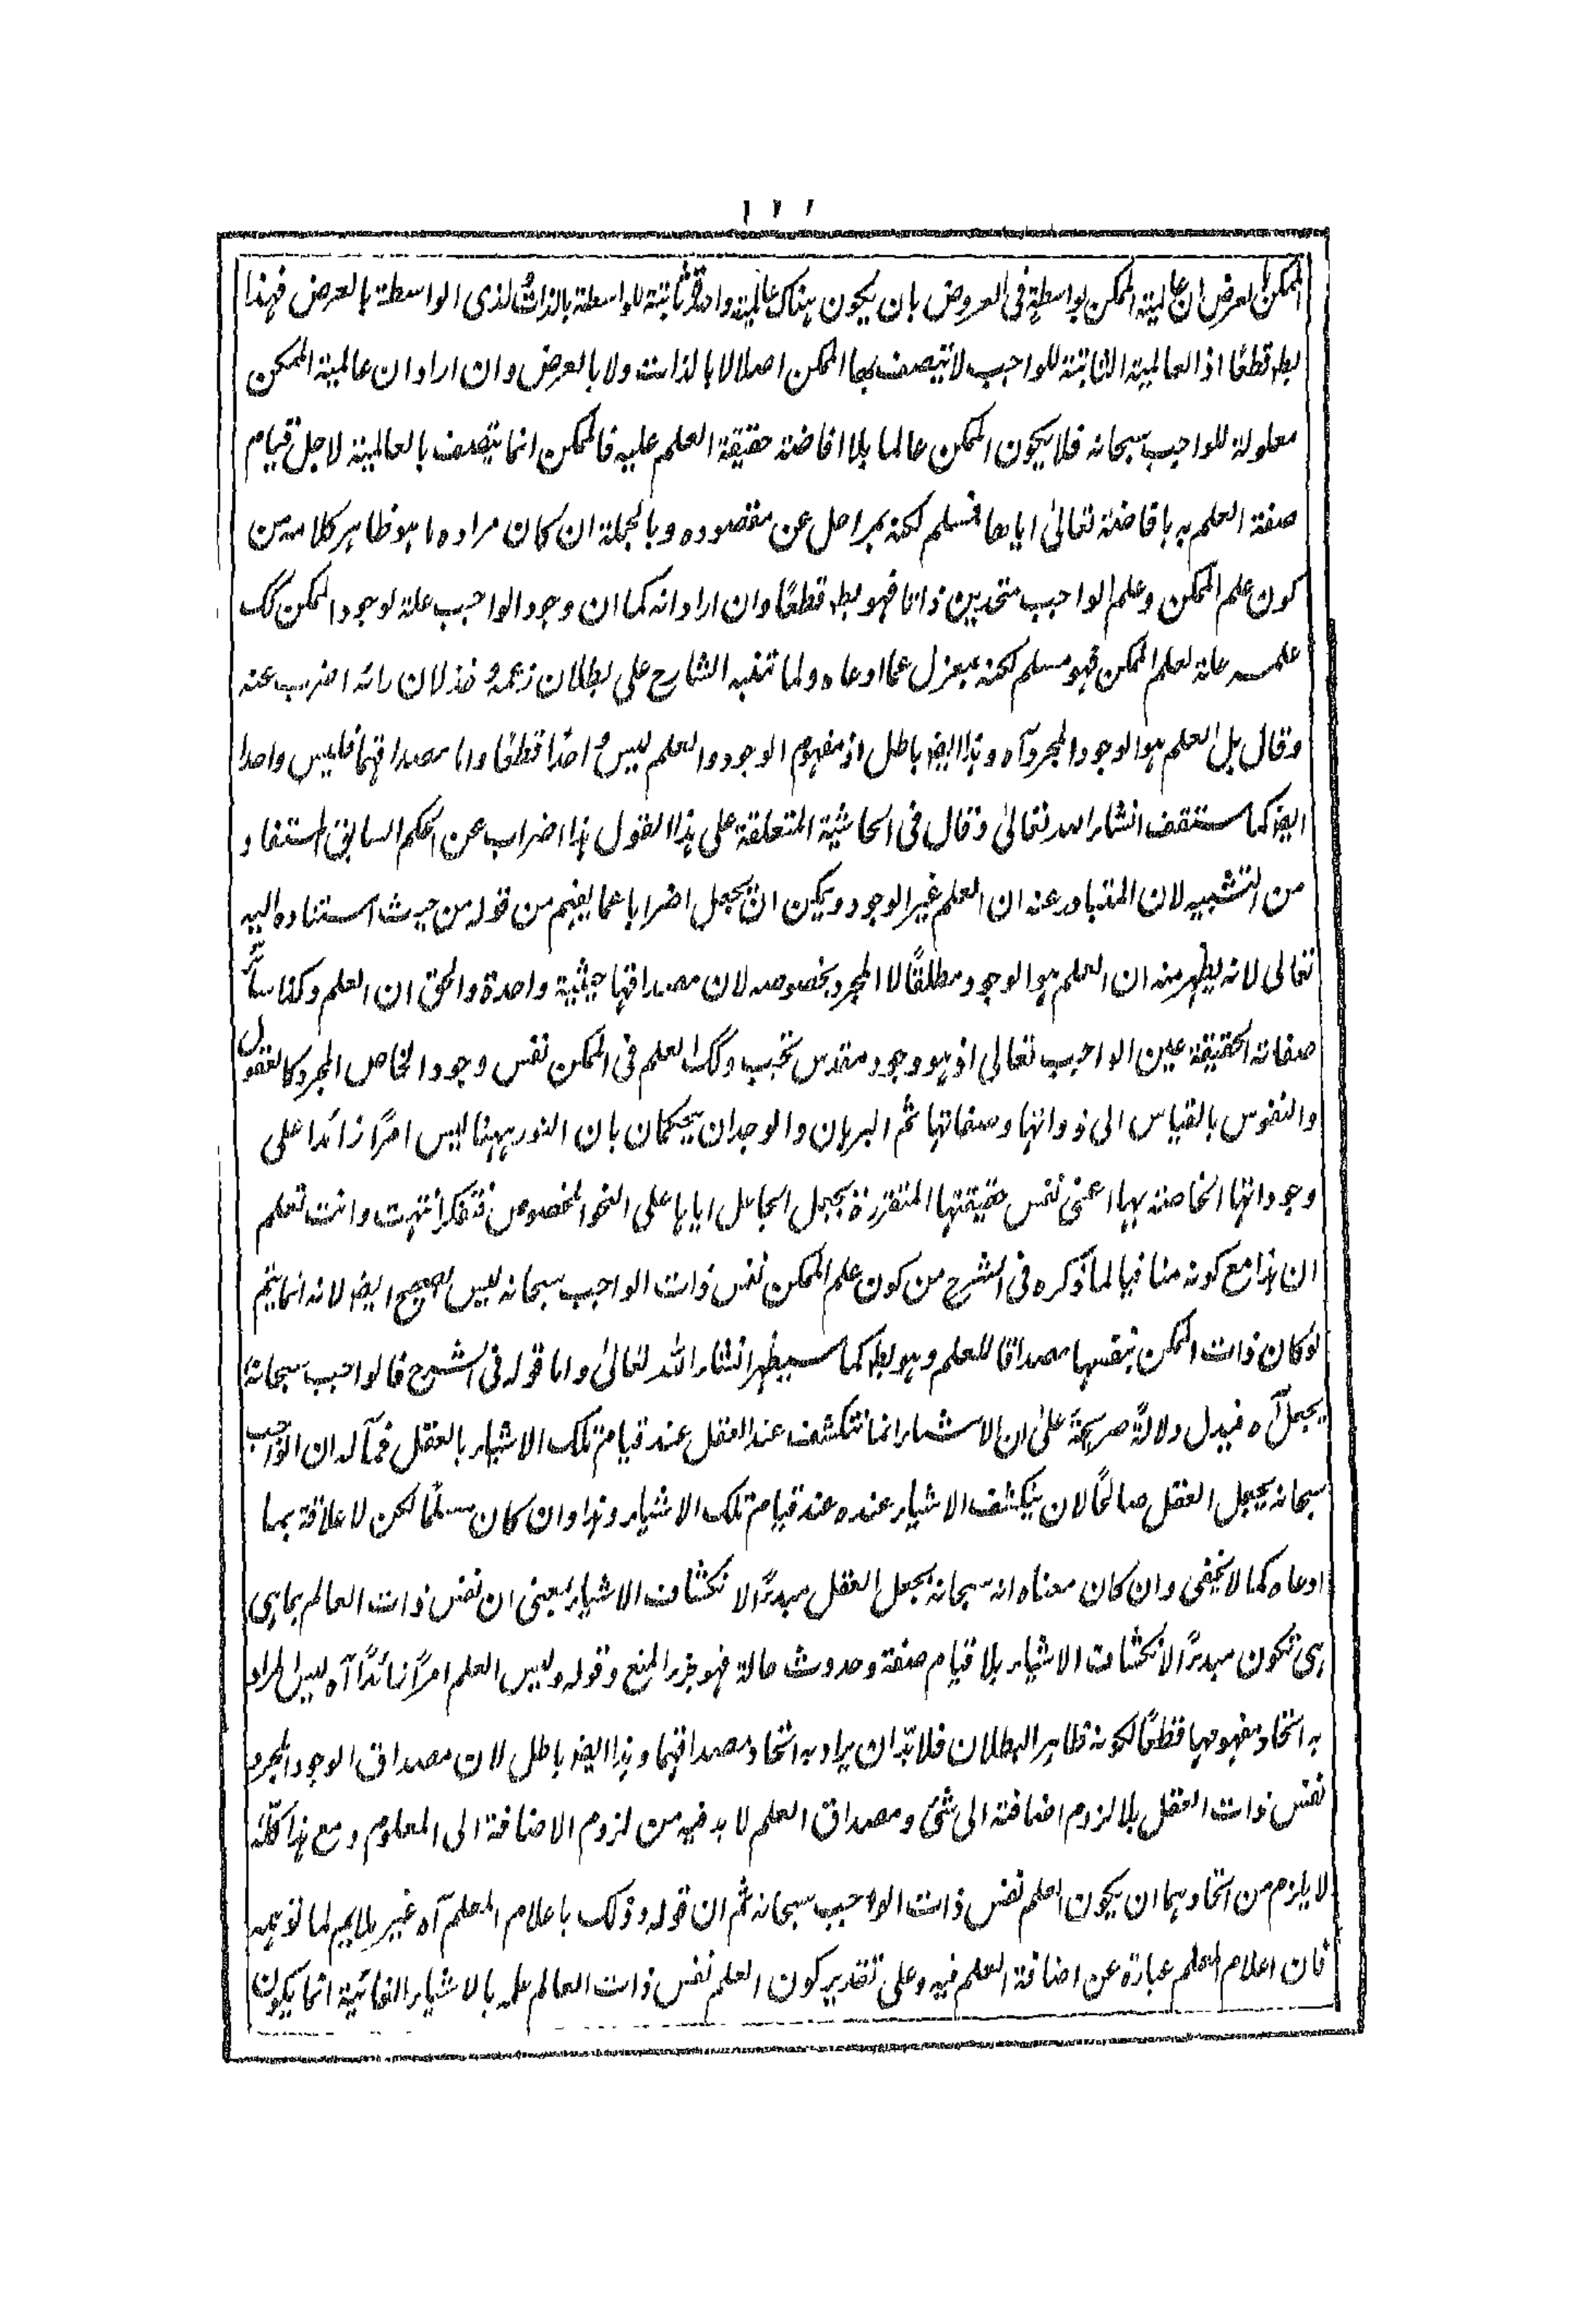 ١٢١
الممكن بالعرض ان عالمية الممكن بواسطة فى العروض بان يكون هناك عالمية واحدة ثابتة للواسطة بالذات ولذى الواسطة بالعرض فهذا
بط قطعًا اذ العالمية الثابتة للواجب لا يتصف بها الممكن اصلا لا بالذات ولا بالعرض وان اراد ان عالمية الممكن
معلولة للواجب سبحانه فلا يكون الممكن عالما بلا افاضة حقيقة العلم عليه فالممكن انما يتصف بالعالمية لاجل قيام
صفة العلم به بافاضته تعالىٰ اياها فمسلم لكنه بمراحل عن مقصوده وبالجملة ان كان مراده ما هو ظاهر كلامه من
كون علم الممكن وعلم الواجب متحدين ذاتا فهو بط قطعًا وان اراد انه كما ان وجود الواجب علة لوجود الممكن كك
علمه علة لعلم الممكن فهو مسلم لكنه بمعزل عما ادعاه ولما تنبه الشارح على بطلان زعمه وخذلان رائه اضرب عنه
وقال بل العلم هو الوجود المجرد آه وهذا ايضا باطل اذ مفهوم الوجود والعلم ليس واحدًا قطعًا واما مصداقهما فليس واحدا
ايضا كما ستقف انشاء الله تعالىٰ وقال فى الحاشية المتعلقة على هذا القول هذا اضراب عن الحكم السابق المستفاد
من التشبيه لان المتبادر عنه ان العلم غير الوجود ويمكن ان يجعل اضرابا عما يفهم من قوله من حيث استناده اليه
تعالى لانه يظهر منه ان العلم هو الوجود مطلقًا لا المجرد بخصوصه لان مصداقها حيثية واحدة والحق ان العلم وكذا سائر
صفاته الحقيقة عين الواجب تعالى اذ هو وجود مقدس بحت وكك العلم فى الممكن نفس وجود الخاص المجرد كالعقول
والنفوس بالقياس الى ذواتها وصفاتها ثم البرهان والوجدان يحكمان بان النور ههنا ليس امرًا زائدا على
وجوداتها الخاصة بها اعنى نفس حقيقتها المتقررة بجعل الجاعل اياها على النحو المخصوص فتفكر انتهت وانت تعلم
ان هذا مع كونه منافيا لما ذكره فى الشرح من كون علم الممكن نفس ذات الواجب سبحانه ليس بصحيح ايضا لانه انما يتم
لو كان ذات الممكن بنفسها مصداقا للعلم وهو بط كما سيظهر انشاء الله تعالىٰ واما قوله فى الشرح فالواجب سبحانه
يجعل آه فيدل دلالة صريحة علىٰ ان الاشياء انما تنكشف عند العقل عند قيام تلك الاشياء بالعقل فمآله ان الواجب
سبحانه يجعل العقل صالحًا لان ينكشف الاشياء عنده عند قيام تلك الاشياء وهذا وان كان مسلمًا لكن لا علاقة بما
ادعاه كما لا يخفى وان كان معناه انه سبحانه يجعل العقل مبدءًا لانكشاف الاشياء بمعنى ان نفس ذات العالم بما هى
هى تكون مبدءًا لانكشاف الاشياء بلا قيام صفة وحدوث حالة فهو حيز المنع وقوله وليس العلم امرًا زائدًا آه ليس المراد
به اتحاد مفهومها قطعًا لكونه ظاهر البطلان فلا بدّ ان يراد به اتحاد مصداقهما وهذا ايضا باطل لان مصداق الوجود المجرد
نفس ذات العقل بلا لزوم اضافته الى شئ ومصداق العلم لا بد فيه من لزوم الاضافة الى المعلوم ومع هذا كلّه
لا يلزم من اتحادهما ان يكون العلم نفس ذات الواجب سبحانه ثم ان قوله وذلك باعلام المعلم آه غير ملايم لما توهمه
فان اعلام المعلم عبارة عن اضافة العلم فيه وعلى تقدير كون العلم نفس ذات العالم علمه بالاشياء الغائبة انما يكون